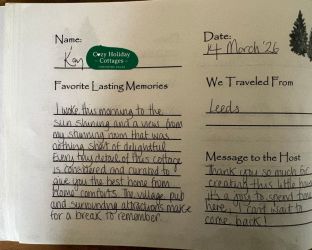 Name:
Kay
Cozy Holiday
Cottages
Date:
14 March 26
Favorite Lasting Memories
I woke this morning to the
sun shining and a view from
my stunning room that was
nothing short of delightful
Every tiny detail of this cottage
is considered and curated to
give you the best home from
Home comforts. The village pub
and surrounding attractions make
for a break to remember.
We Traveled From
Leeds
Message to the Host
Thank you so much for
creating this little hous
it's a joy to spend time
here, I can't wait to
come back!